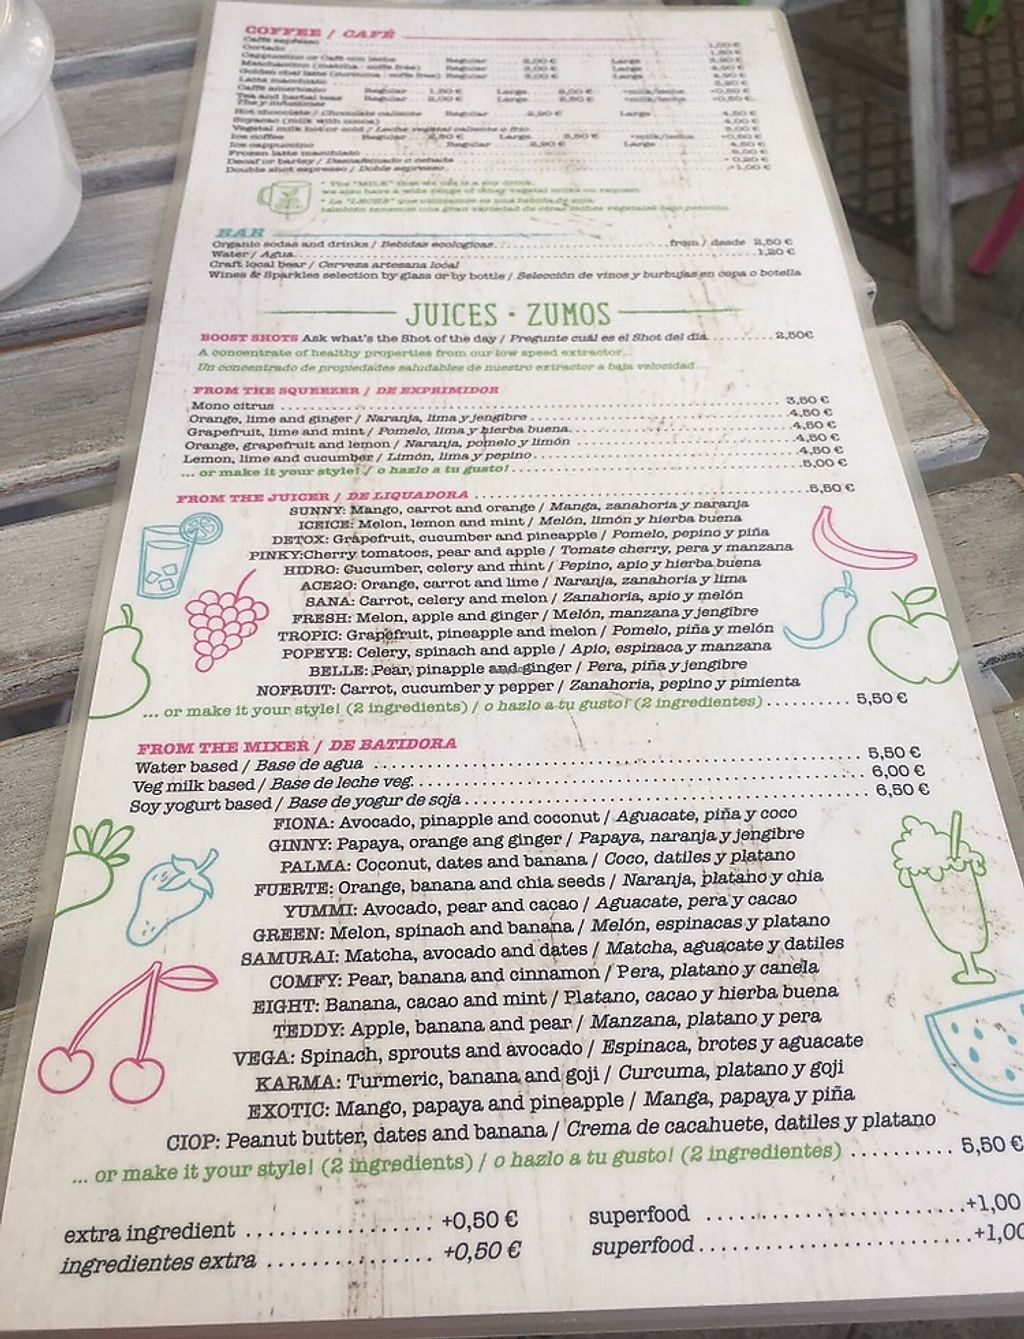 COFFEE / CAFÉ
Caffè espresso 1,00 €
Cortado
Cappuccino or Café con leche Regular Large
Golden chai latte (curcuma : coffe free) Regular Large
Latte macchiato
Caffè americano Regular 1,50 € Large 2,00 € +milk/leche +0,50 €
Tea and herbal teas Regular 2,00 € Large 2,50 € +milk/leche +0,50 €
Thé y infusiones
Hot chocolate / Chocolate caliente Regular Large
Soyacao (milk with cocoa)
Vegetal milk hot or cold / Leche vegetal caliente o frio
Ice coffee Regular Large +milk/leche
Ice cappuccino Regular Large
Frozen latte macchiato
Decaf or barley / Descafeinado o cebada
Double shot espresso / Doble espresso +1,00 €
* The "MILK" that we use is a soy drink,
we also have a wide range of other vegetal milks on request.
* La "LECHE" que utilizamos es una bebida de soja,
también tenemos una gran variedad de otras leches vegetales bajo petición.
BAR
Organic sodas and drinks / Bebidas ecologicas from / desde 2,50 €
Water / Agua 1,20 €
Craft local bear / Cerveza artesana local
Wines & Sparkles selection by glass or by bottle / Selección de vinos y burbujas en copa o botella
JUICES · ZUMOS
BOOST SHOTS Ask what's the Shot of the day / Pregunte cuál es el Shot del dia 2,50€
A concentrate of healthy properties from our low speed extractor...
Un concentrado de propiedades saludables de nuestro extractor a baja velocidad ...
FROM THE SQUEEZER / DE EXPRIMIDOR
Mono citrus 3,50 €
Orange, lime and ginger / Naranja, lima y jengibre 4,50 €
Grapefruit, lime and mint / Pomelo, lima y hierba buena 4,50 €
Orange, grapefruit and lemon / Naranja, pomelo y limón 4,50 €
Lemon, lime and cucumber / Limón, lima y pepino 4,50 €
... or make it your style! / o hazlo a tu gusto! 5,00 €
FROM THE JUICER / DE LIQUADORA 5,50 €
SUNNY: Mango, carrot and orange / Manga, zanahoria y naranja
ICEICE: Melon, lemon and mint / Melón, limón y hierba buena
DETOX: Grapefruit, cucumber and pineapple / Pomelo, pepino y piña
PINKY:Cherry tomatoes, pear and apple / Tomate cherry, pera y manzana
HIDRO: Cucumber, celery and mint / Pepino, apio y hierba buena
ACE2O: Orange, carrot and lime / Naranja, zanahoria y lima
SANA: Carrot, celery and melon / Zanahoria, apio y melón
FRESH: Melon, apple and ginger / Melón, manzana y jengibre
TROPIC: Grapefruit, pineapple and melon / Pomelo, piña y melón
POPEYE: Celery, spinach and apple / Apio, espinaca y manzana
BELLE: Pear, pinapple and ginger / Pera, piña y jengibre
NOFRUIT: Carrot, cucumber y pepper / Zanahoria, pepino y pimienta
... or make it your style! (2 ingredients) / o hazlo a tu gusto! (2 ingredientes) 5,50 €
FROM THE MIXER / DE BATIDORA
Water based / Base de agua 5,50 €
Veg milk based / Base de leche veg. 6,00 €
Soy yogurt based / Base de yogur de soja 6,50 €
FIONA: Avocado, pinapple and coconut / Aguacate, piña y coco
GINNY: Papaya, orange ang ginger / Papaya, naranja y jengibre
PALMA: Coconut, dates and banana / Coco, datiles y platano
FUERTE: Orange, banana and chia seeds / Naranja, platano y chia
YUMMI: Avocado, pear and cacao / Aguacate, pera y cacao
GREEN: Melon, spinach and banana / Melón, espinacas y platano
SAMURAI: Matcha, avocado and dates / Matcha, aguacate y datiles
COMFY: Pear, banana and cinnamon / Pera, platano y canela
EIGHT: Banana, cacao and mint / Platano, cacao y hierba buena
TEDDY: Apple, banana and pear / Manzana, platano y pera
VEGA: Spinach, sprouts and avocado / Espinaca, brotes y aguacate
KARMA: Turmeric, banana and goji / Curcuma, platano y goji
EXOTIC: Mango, papaya and pineapple / Manga, papaya y piña
CIOP: Peanut butter, dates and banana / Crema de cacahuete, datiles y platano
... or make it your style! (2 ingredients) / o hazlo a tu gusto! (2 ingredientes) 5,50 €
extra ingredient +0,50 € superfood +1,00
ingredientes extra +0,50 € superfood +1,00